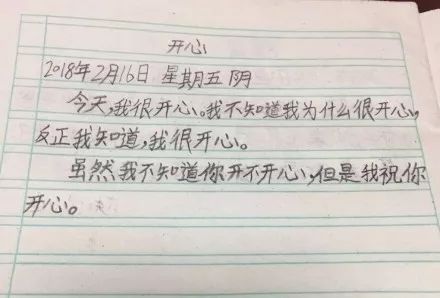 开心
2018年2月16日 星期五 阴
今天,我很开心。我不知道我为什么很开心,
反正我知道,我很开心。
虽然我不知道你开不开心,但是我祝你
开心。